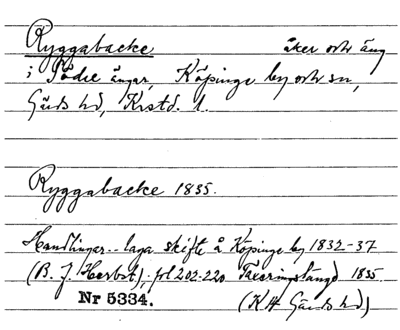 Ryggabacke åker och äng
i Södre ängar, Köpinge by och sn,
Gärds hd, Krstd. l.
Ryggabacke 1835.
Handlingar .. laga skifte å Köpinge by 1832-37
(B. J. Herbst); fol 202-220 Taxeringslängd 1835.
Nr 5334. (K H Gärds hd)